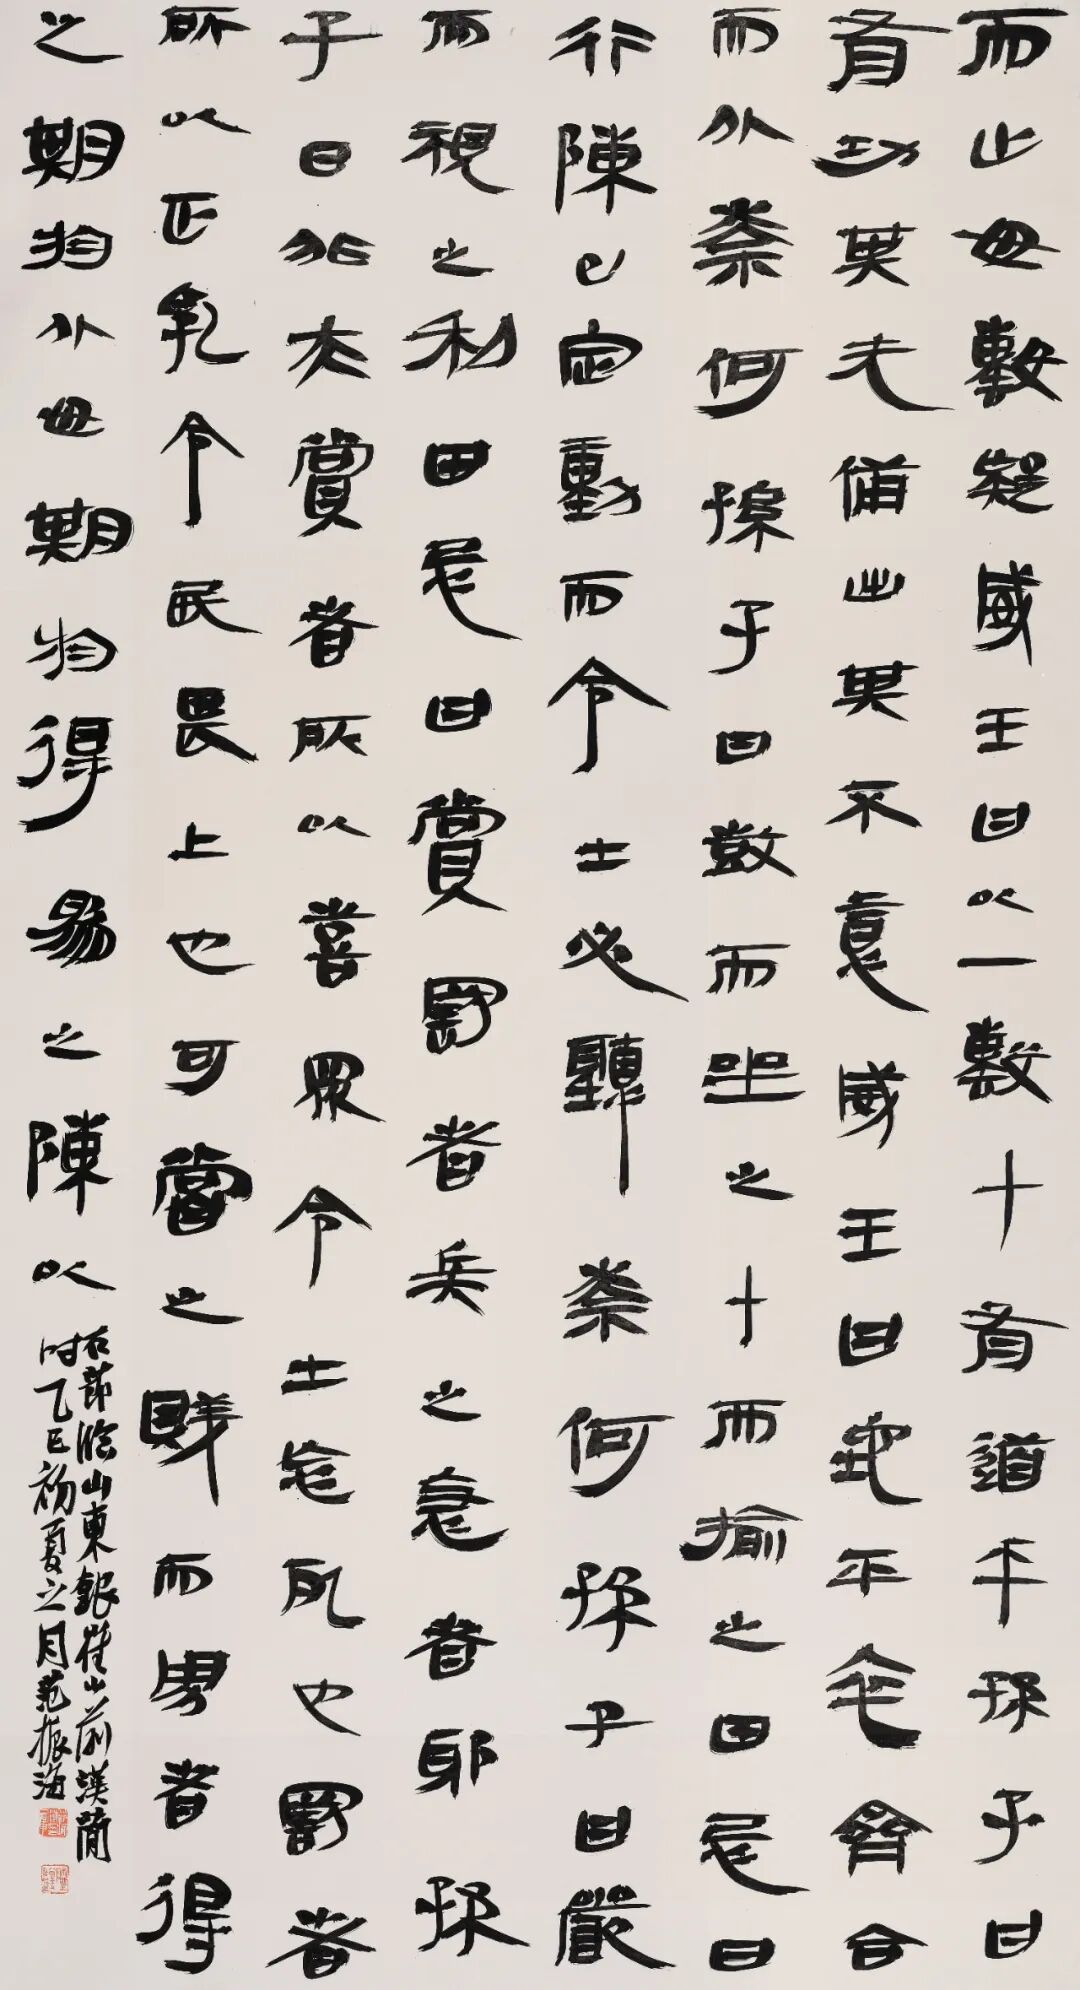 而止毋擊疑威王曰以一擊十有道乎孫子曰
有功其无備出其不意威王曰地平卒齊合
而北柰何孫子曰鼓而坐之十而揄之田忌曰
行陳已定動而令士必聽柰何孫子曰嚴
而視之利田忌曰賞罰者兵之急者耶孫
子曰非夫賞者所以喜眾令士忘死也罰者
所以正亂令民畏上也可嘗之賤而勇者得
之期於北毋期於得易之陳以
右節臨山東銀雀山前漢簡
時乙巳初夏之月范振海